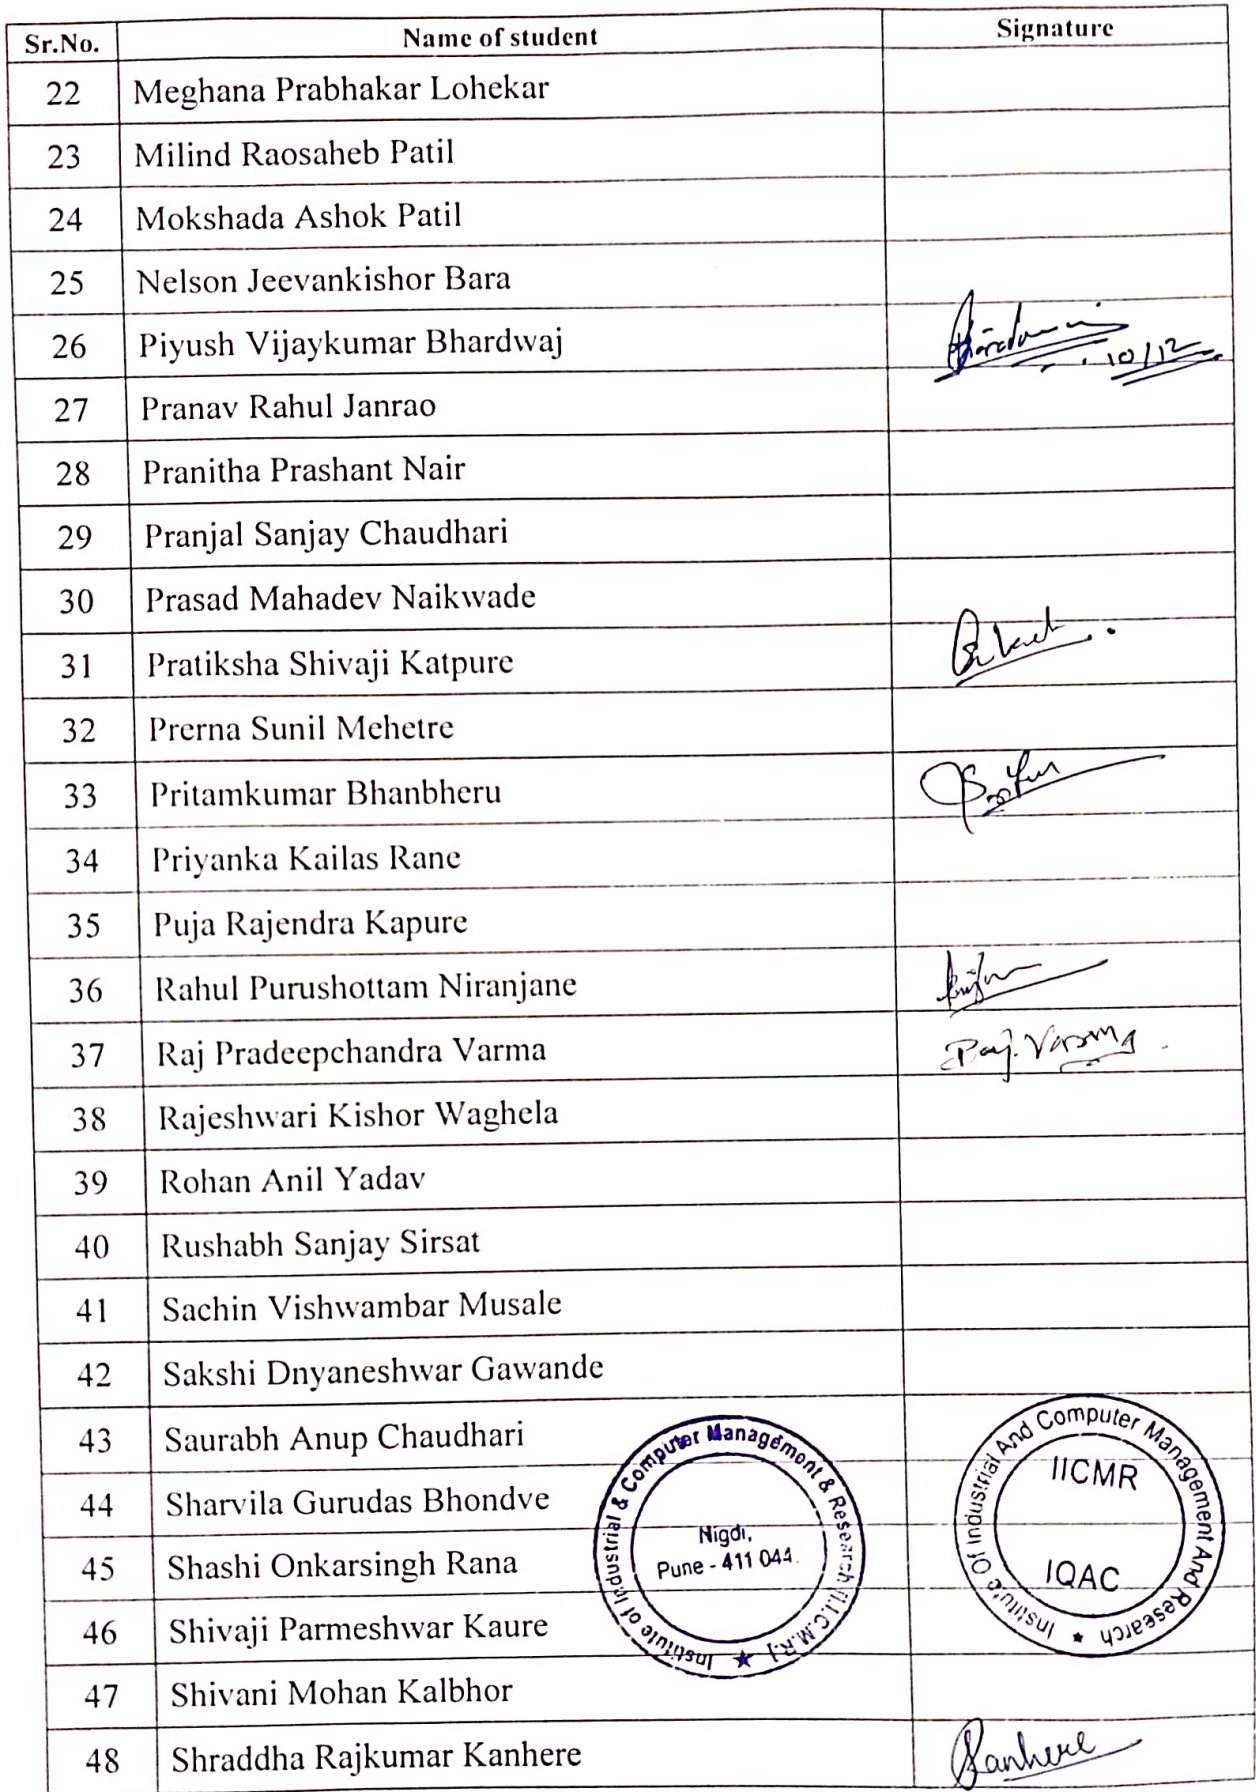 Sr.No. Name of student Signature
22 Meghana Prabhakar Lohekar
23 Milind Raosaheb Patil
24 Mokshada Ashok Patil
25 Nelson Jeevankishor Bara
26 Piyush Vijaykumar Bhardwaj 10/12
27 Pranav Rahul Janrao
28 Pranitha Prashant Nair
29 Pranjal Sanjay Chaudhari
30 Prasad Mahadev Naikwade
31 Pratiksha Shivaji Katpure
32 Prerna Sunil Mehetre
33 Pritamkumar Bhanbheru
34 Priyanka Kailas Rane
35 Puja Rajendra Kapure
36 Rahul Purushottam Niranjane
37 Raj Pradeepchandra Varma Raj. Varma
38 Rajeshwari Kishor Waghela
39 Rohan Anil Yadav
40 Rushabh Sanjay Sirsat
41 Sachin Vishwambar Musale
42 Sakshi Dnyaneshwar Gawande
43 Saurabh Anup Chaudhari
44 Sharvila Gurudas Bhondve
45 Shashi Onkarsingh Rana
46 Shivaji Parmeshwar Kaure
47 Shivani Mohan Kalbhor
48 Shraddha Rajkumar Kanhere Kanhere
Institute of Industrial & Computer Management & Research [I.I.C.M.R.] ★
Nigdi,
Pune - 411 044.
Institute Of Industrial And Computer Management And Research ★
IICMR
IQAC